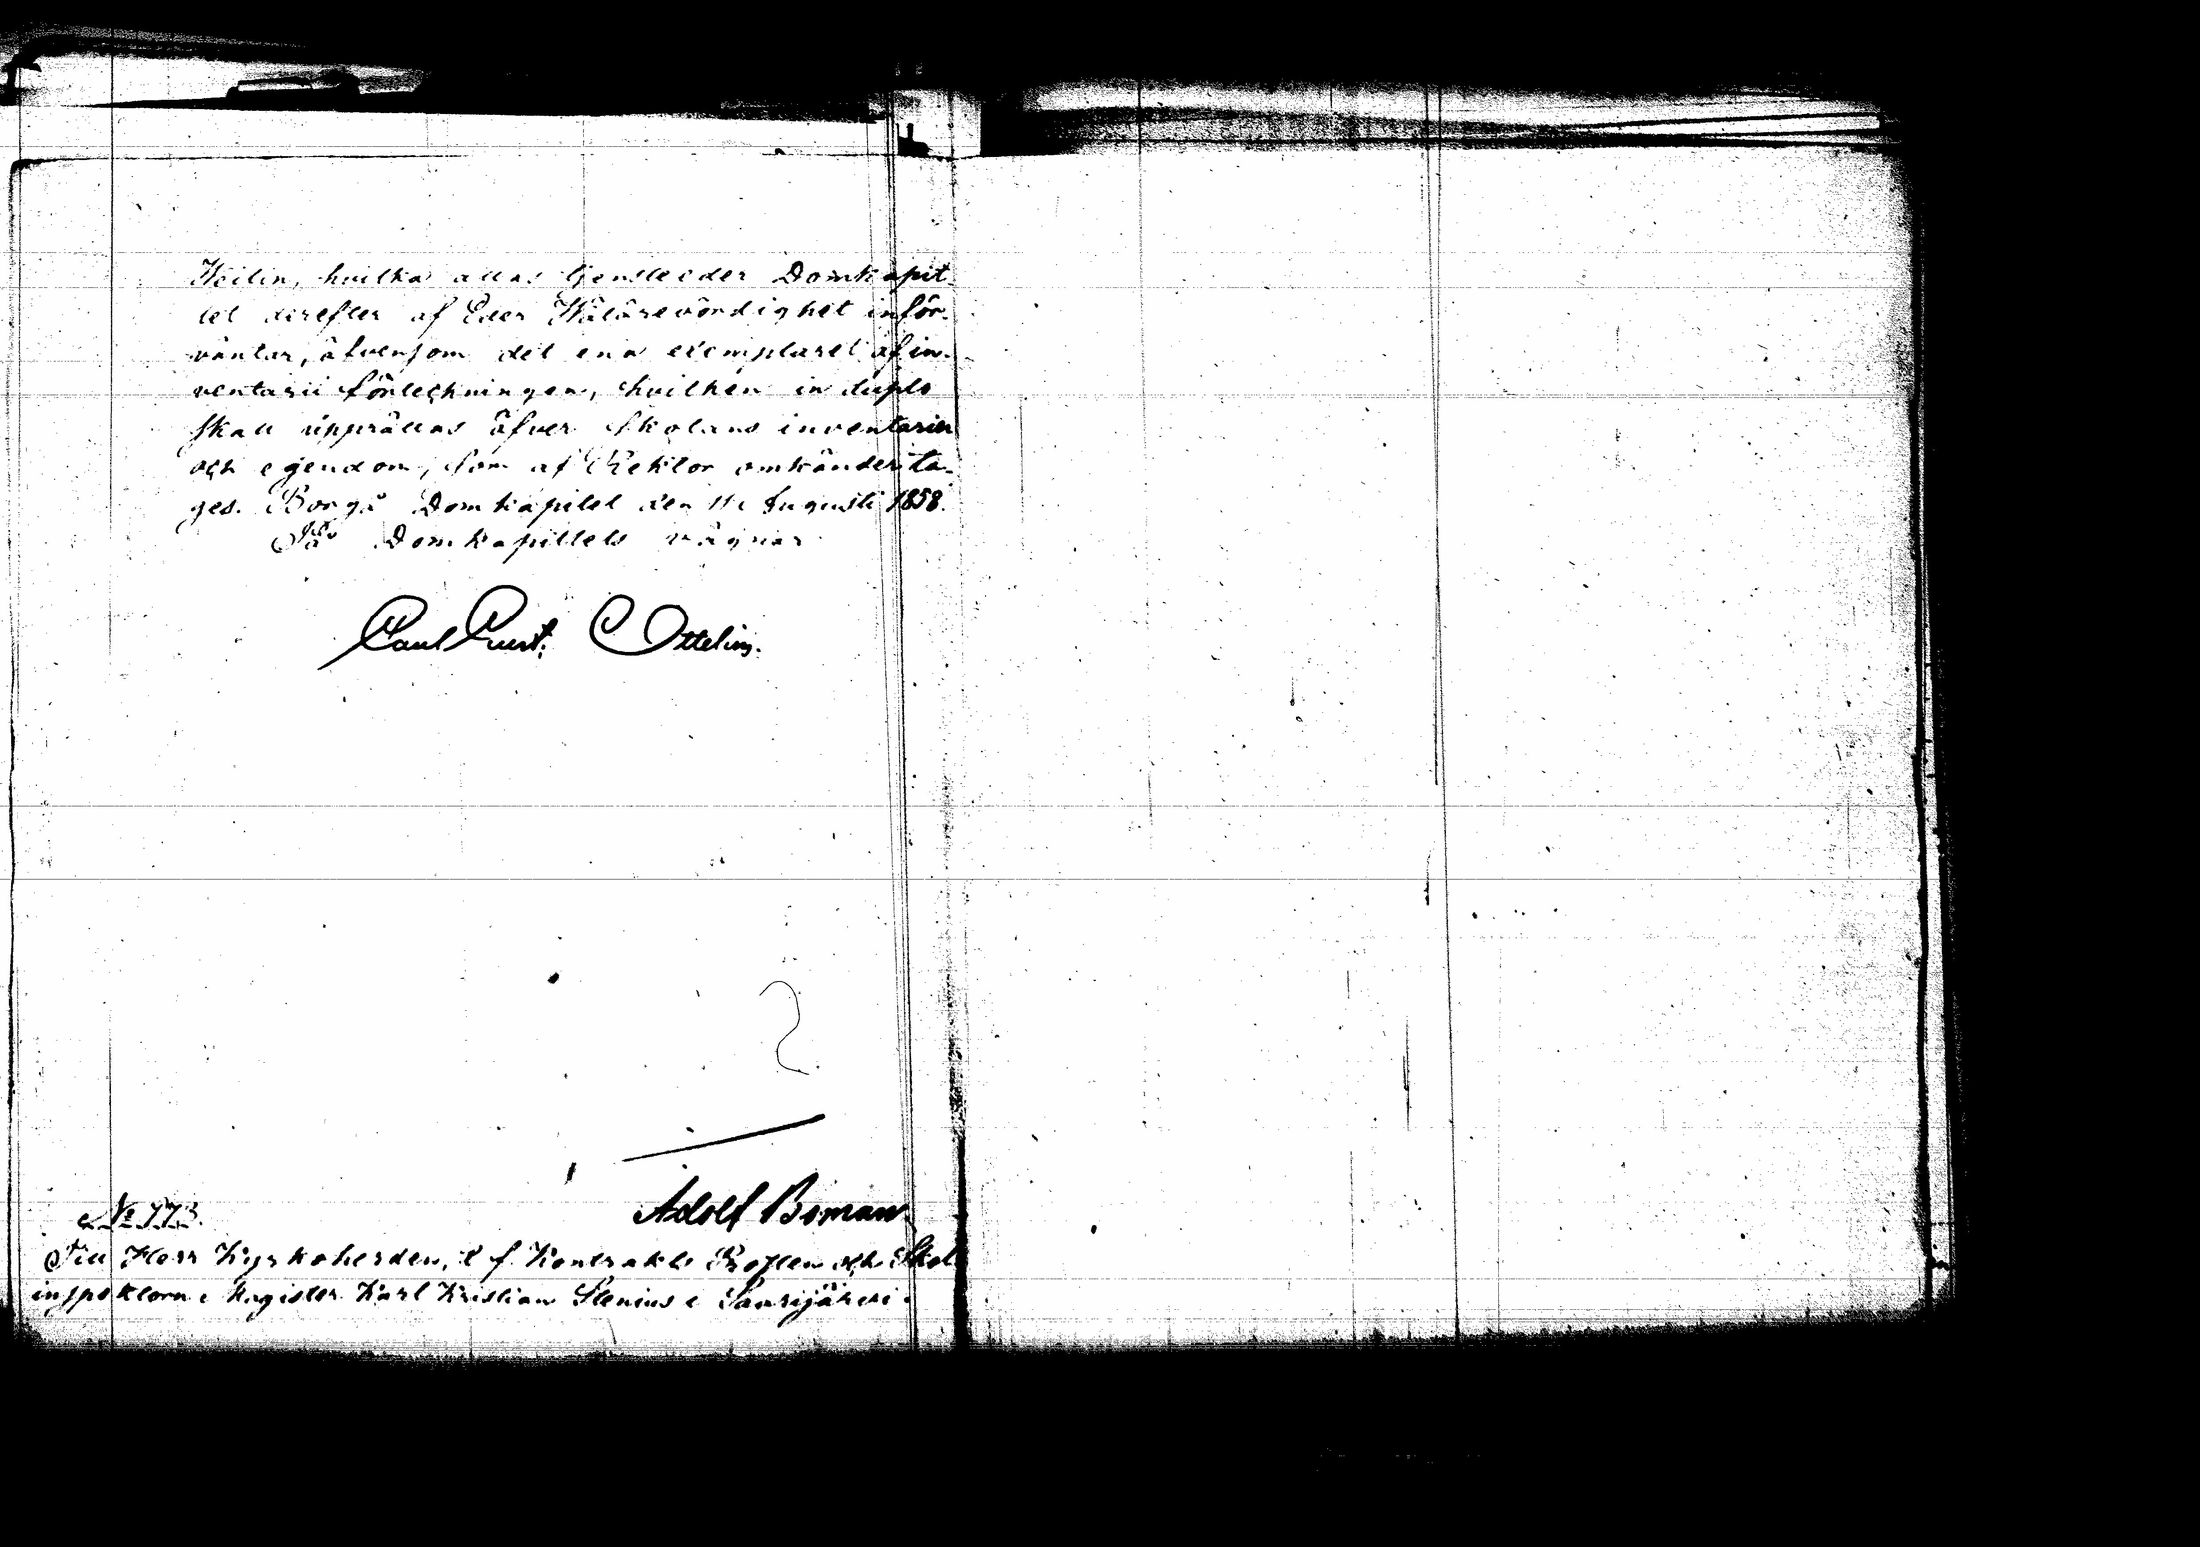 Heilin, hvilka allas tjensteeder Domkapit-
let derefter af Eder Höglärevördighet inför-
väntar, äfvensom det ena exemplaret af in-
ventarii förteckningen, hvilken in duplo
skall upprättas öfver skolans inventarier
och egendom, som af Rektor omhänder ta-
ges. Borgå Domkapitel den 11 Augusti 1858.
På Domkapitlets vägnar
Carl Gust. Ottelin.
Adolf Boman
No 773.
Till Herr Kyrkoherden, t f Kontrakts Prosten och Skol
inspektorn Magister Karl Kristian Stenius i Saarijärvi.